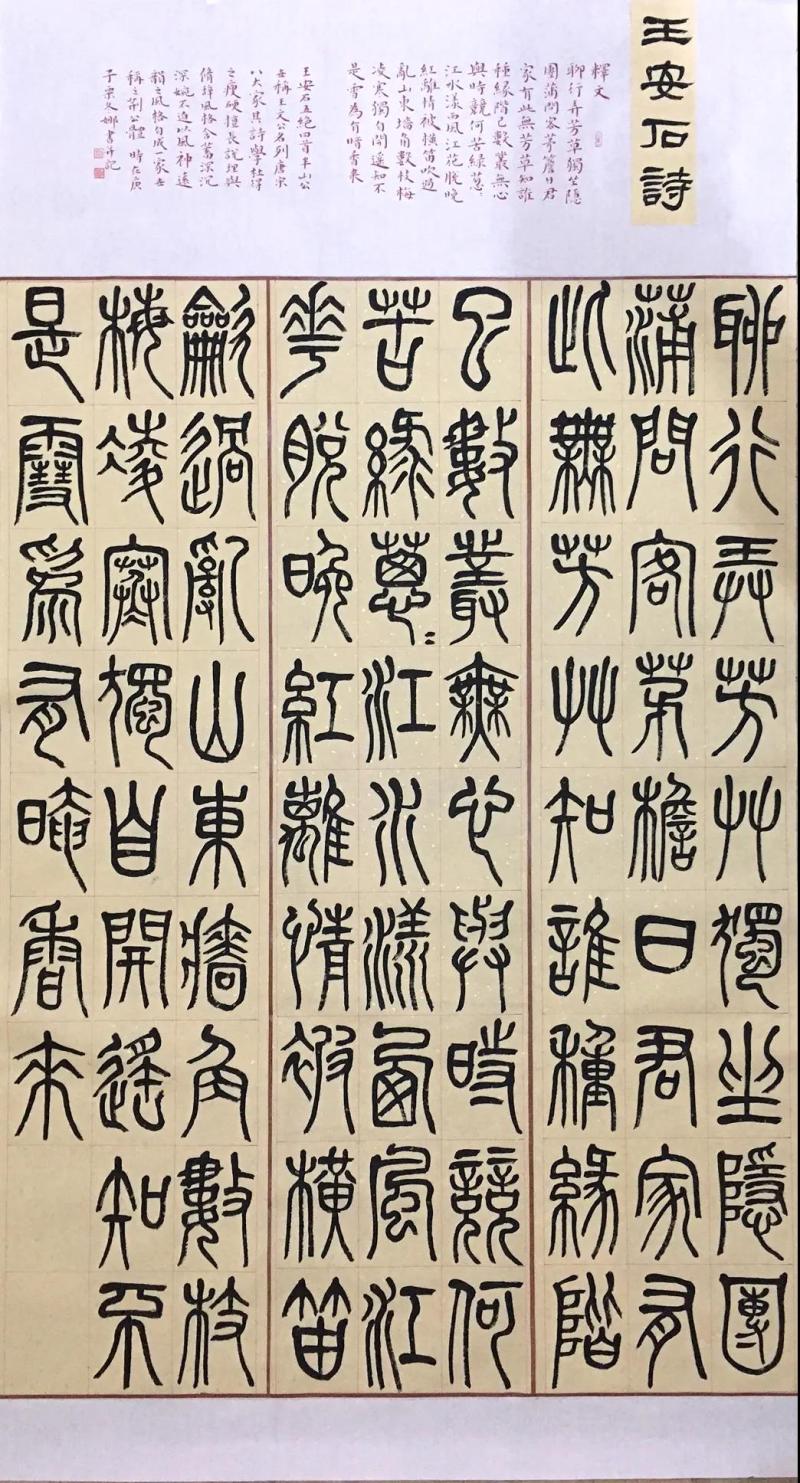 王安石詩
釋文
聊行弄芳草獨坐隱
團蒲問客茅簷日君
家有此無芳草知誰
種緣階已數叢無心
與時競何苦綠蔥〻
江水漾西風江花脫晚
紅離情被橫笛吹過
亂山東墻角數枝梅
凌寒獨自開遥知不
是雪為有暗香來
王安石五絕四首半山公
世稱王文公名列唐宋
八大家其詩學杜得
之瘦硬擅長說理與
脩辭風格含蓄深沉
深婉不迫以風神遠
韻之風格自成一家世
稱之荊公體 時在庚
子 書并記
聊行弄芳艸獨坐隱團
蒲問客茅檐日君家有
此無芳艸知誰種緣階
已數叢無心與時競何
苦綠蔥〻江水漾西風江
華脫晚紅離情被橫笛
龡過亂山東牆角數枝
梅凌寒獨自開遙知不
是雪為有暗香來